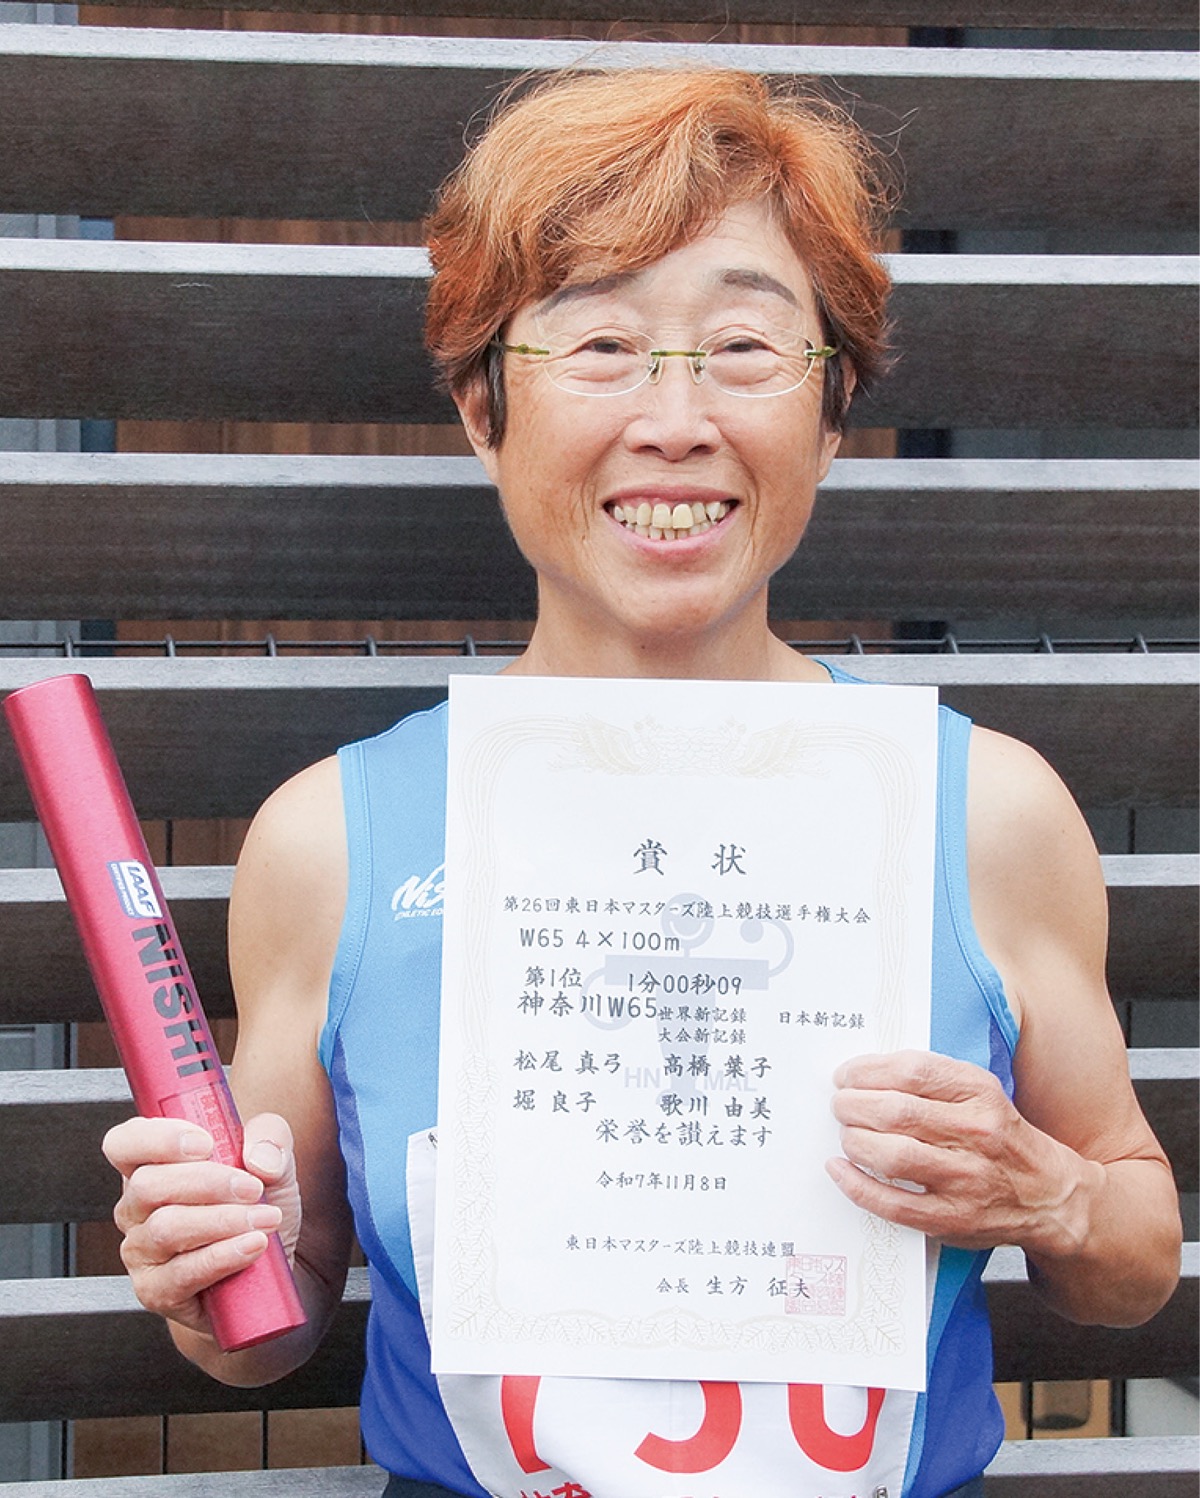 賞 状
第26回東日本マスターズ陸上競技選手権大会
W65 4×100m
第1位 1分00秒09
神奈川W65 世界新記録 日本新記録
大会新記録
松尾 真弓 高橋 葉子
堀 良子 歌川 由美
栄誉を讃えます
令和7年11月8日
東日本マスターズ陸上競技連盟
会長 生方 征夫
HN MAL
IAAF
NISHI